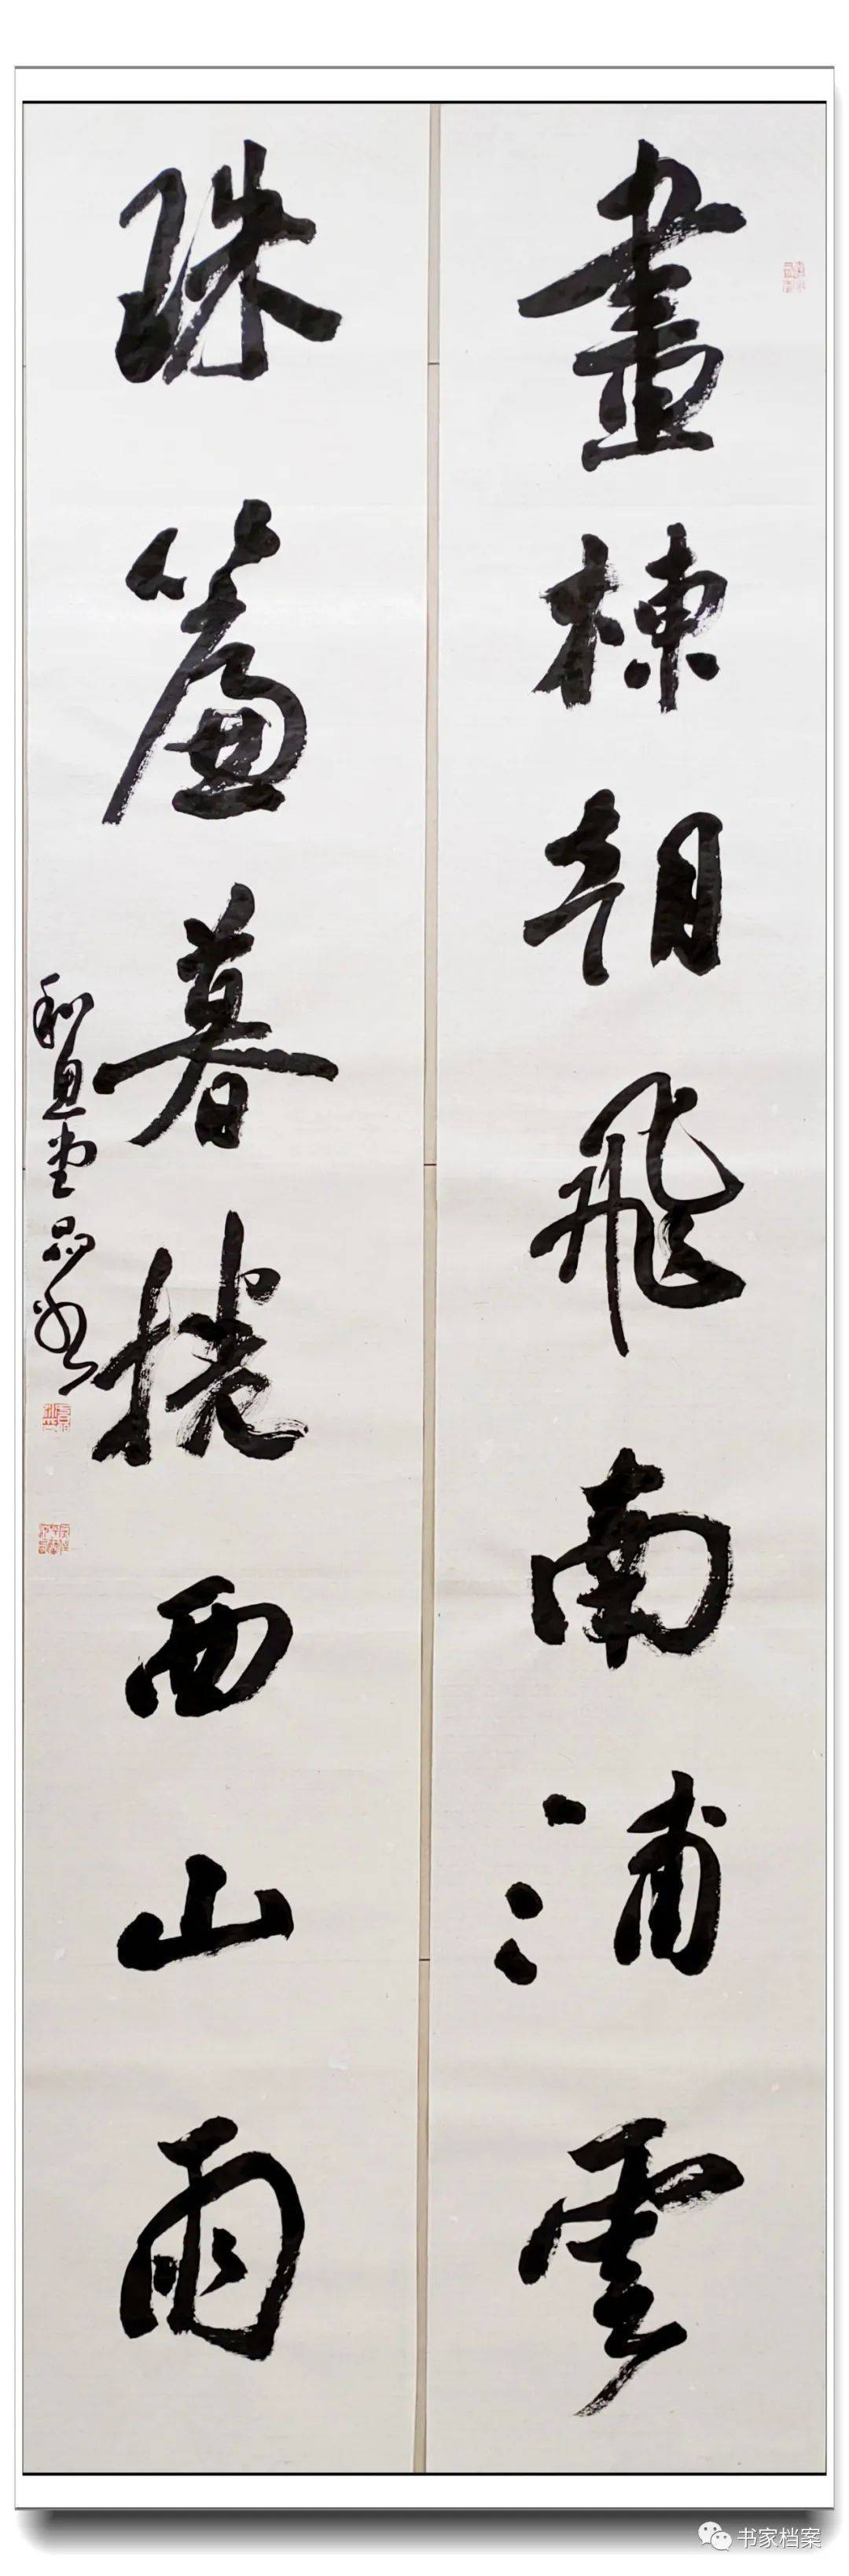 畫棟朝飛南浦雲
珠簾暮捲西山雨
書家档案